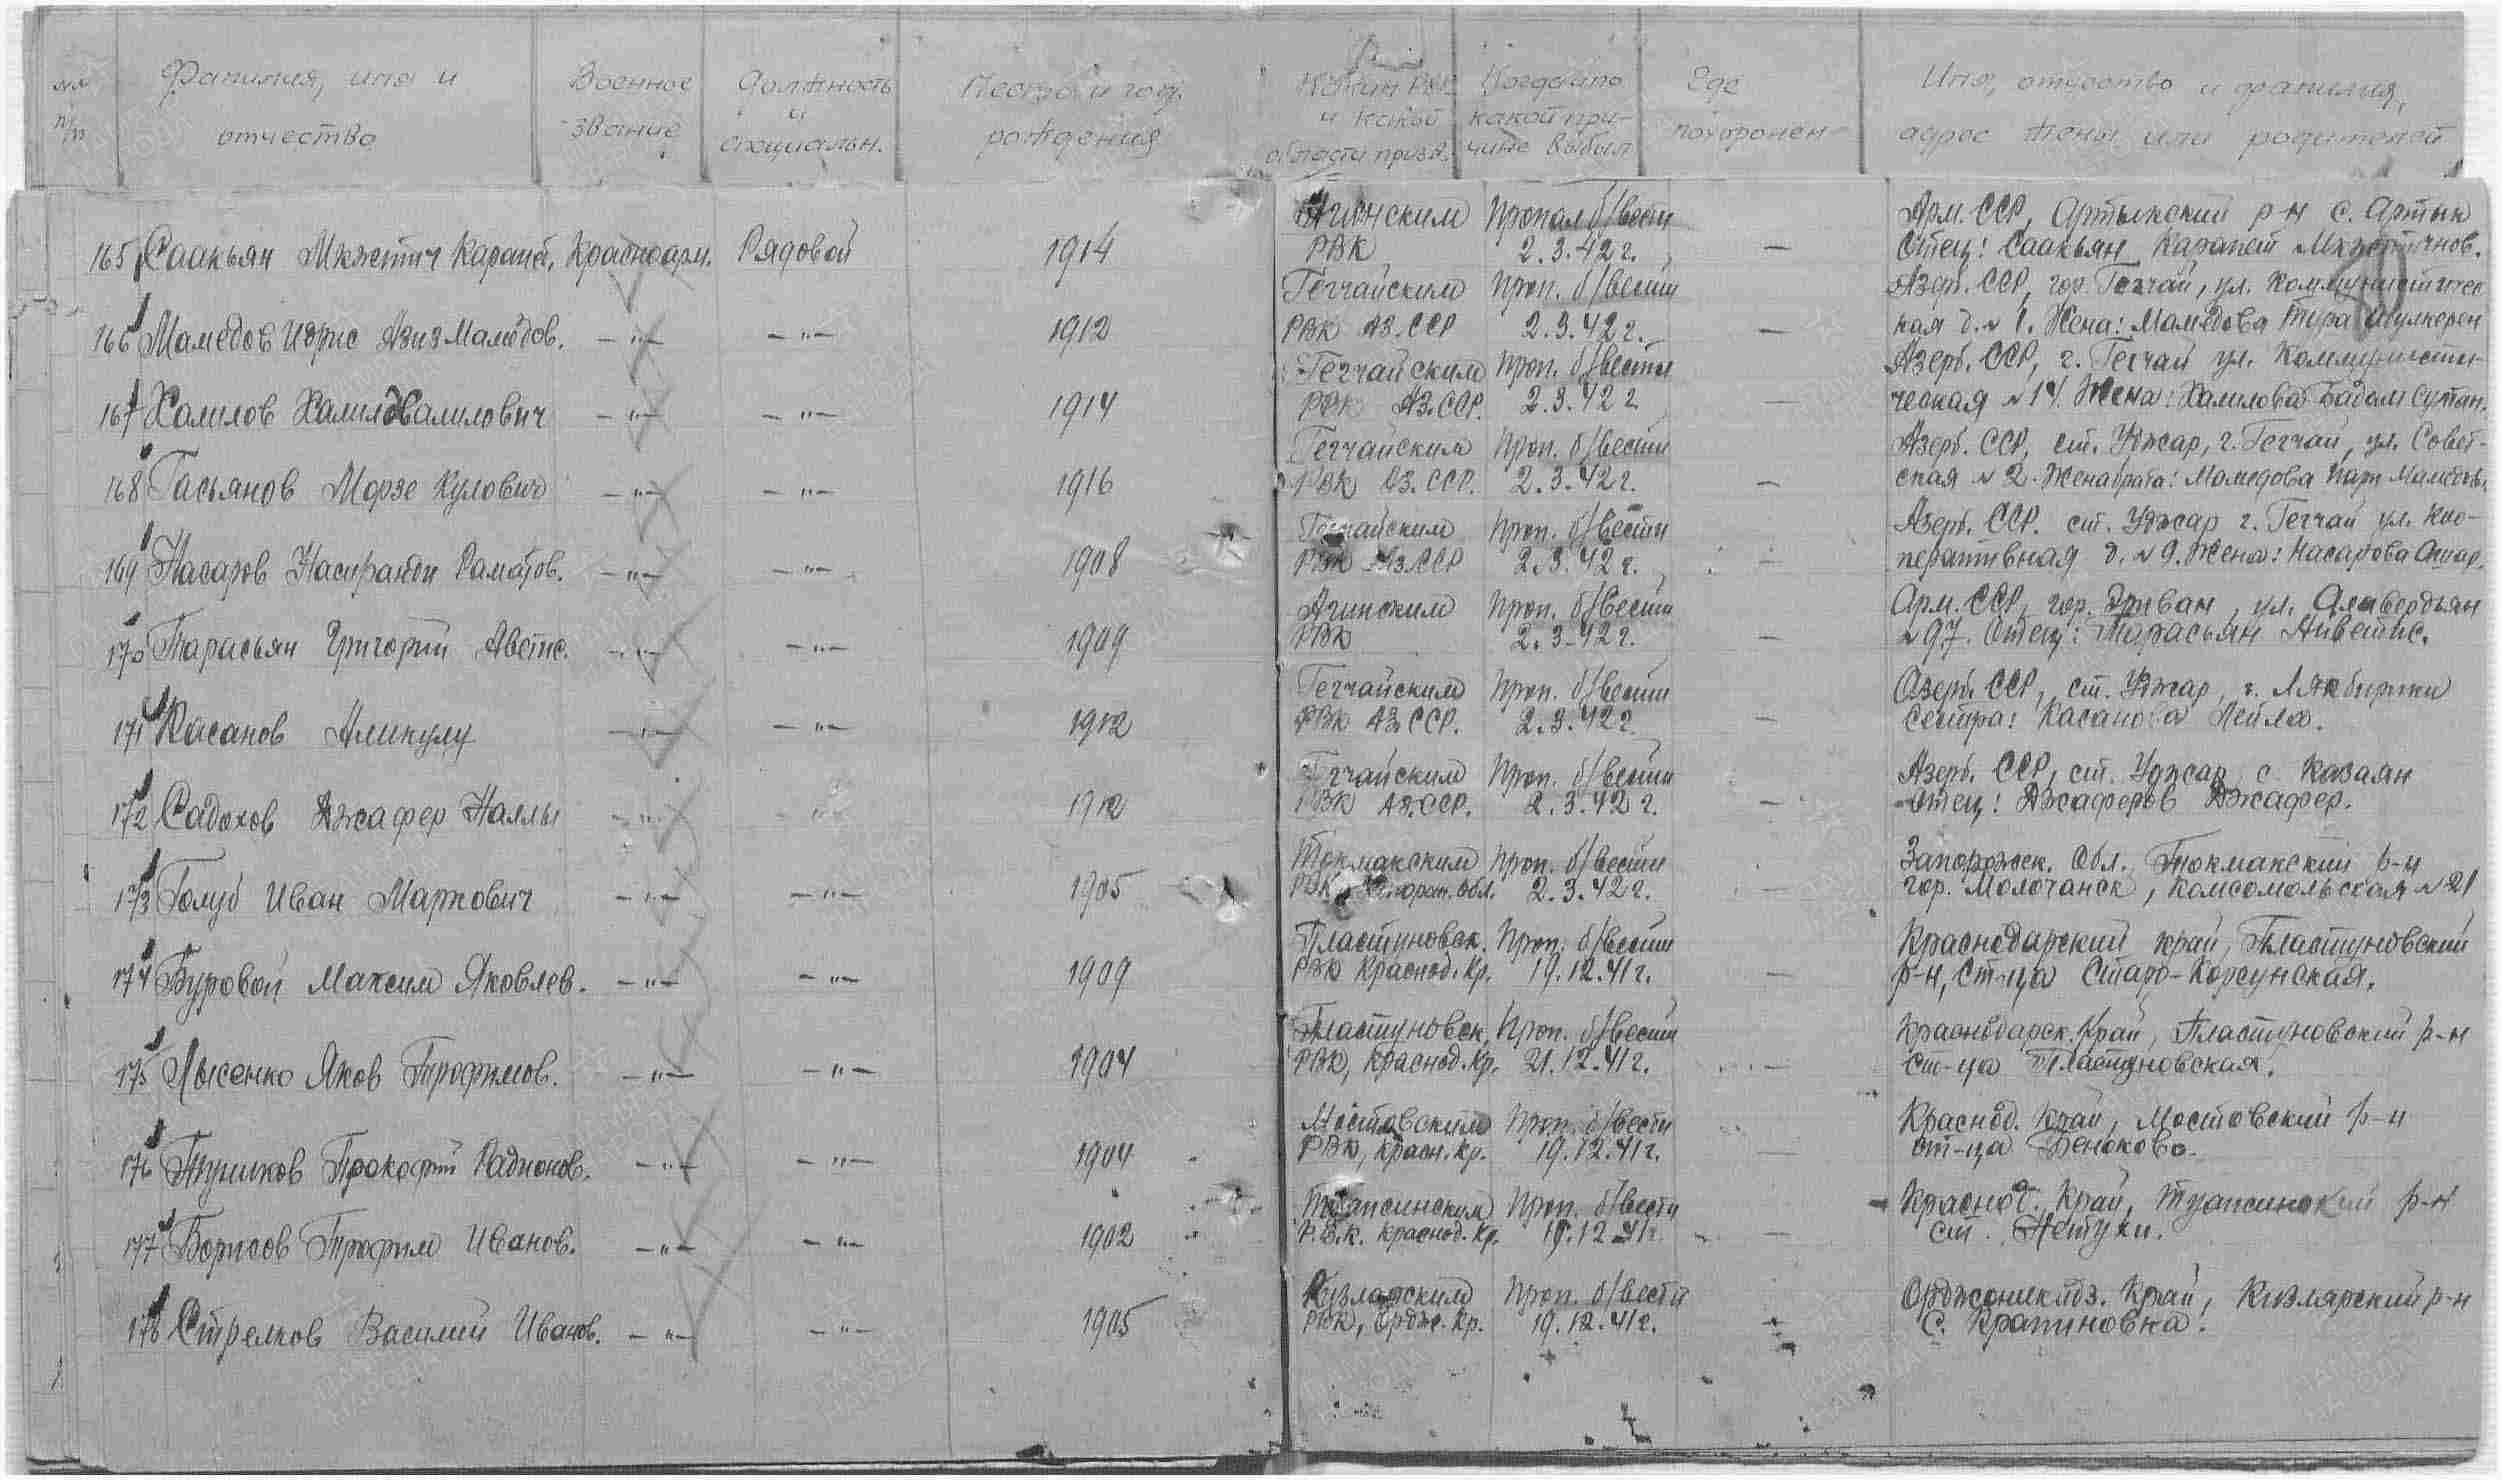 №№ п/п
Фамилия, имя и отчество
Военное звание
Должность и специальн.
Место и год рождения
Каким РВК и какой области призв.
Когда и по какой причине выбыл
Где похоронен
Имя, отчество и фамилия, адрес жены или родителей
165 Саакьян Мкжетич Карапет. Красноарм. Рядовой 1914
Агинским РВК Пропал б/вести 2.3.42 г. —
Арм. ССР, Артыкский р-н с. Артык
Отец: Саакьян Карапет Мкжетичнов.
166 Мамедов Идрис Азиз Мамедов. —"— —"— 1912
Гегчайским РВК АЗ. ССР Проп. б/вести 2.3.42 г. —
Азерб. ССР, гор. Гегчай, ул. Коммунистичес
кая д. № 1. Жена: Мамедова
167 Халилов Халил Халилович —"— —"— 1914
Гегчайским РВК АЗ. ССР. Проп. б/вести 2.3.42 г —
Азерб. ССР, г. Гегчай ул. Коммунисти-
ческая № 14. Жена: Халилова Бадам Султан.
168 Гасьянов Морзе Кулович —"— —"— 1916
Гегчайским РВК АЗ. ССР. Проп. б/вести 2.3.42 г. —
Азерб. ССР, ст. Уджар, г. Гегчай, ул. Совет-
ская № 2. Жена брата: Мамедова Мамедов.
169 Насаров —"— —"— 1908
Гегчайским РВК АЗ. ССР Проп. б/вести 2.3.42 г. —
Азерб. ССР. ст. Уджар г. Гегчай ул. Коо-
перативная д. № 9. Жена: Насарова
170 Тарасьян Григорий Аветис. —"— —"— 1909
Агинским РВК Проп. б/вести 2.3-42 г. —
Арм. ССР, гор. Эриван, ул. Алавердьян
№ 97. Отец: Тарасьян Аветис.
171 Касанов Аликулу —"— —"— 1912
Гегчайским РВК АЗ. ССР. Проп. б/вести 2.3.42 г. —
Азерб. ССР, ст. Уджар, г.
Сестра: Касанова Лейла.
172 Садохов Джафер Наллы —"— —"— 1912
Гегчайским РВК АЗ. ССР. Проп. б/вести 2.3.42 г. —
Азерб. ССР, ст. Уджар с. Казаян
Отец: Джаферов Джафер.
173 Голуб Иван Маркович —"— —"— 1905
Токмакским РВК Запорож. обл. Проп. б/вести 2.3.42 г. —
Запорожск. Обл. Токмакский р-н
гор. Молочанск, Комсомольская № 21
174 Буровой Максим Яковлев. —"— —"— 1909
Пластуновск. РВК Краснод. Кр. Проп. б/вести 19.12.41 г. —
Краснодарский край, Пластуновский
р-н, ст-ца Старо-Корсунская.
175 Лысенко Яков Трофимов. —"— —"— 1904
Пластуновск. РВК, Краснод. Кр. Проп. б/вести 21.12.41 г. —
Краснодарск. Край, Пластуновский р-н
ст-ца Пластуновская.
176 Прокофий Радионов. —"— —"— 1904
Мостовским РВК, Красн. Кр. Проп. б/вести 19.12.41 г. —
Краснод. Край, Мостовский р-н
ст-ца Беноково.
177 Борисов Трофим Иванов. —"— —"— 1902
Туапсинским Р.В.К. Краснод. Кр. Проп. б/вести 19.12.41 г. —
Краснод. Край, Туапсинский р-н
ст.
178 Стрелков Василий Иванов. —"— —"— 1905
Кузлярским РВК, Ордж. Кр. Проп. б/вести 19.12.41 г.
Орджоникидз. Край, Кизлярский р-н
с. Крапиновка.